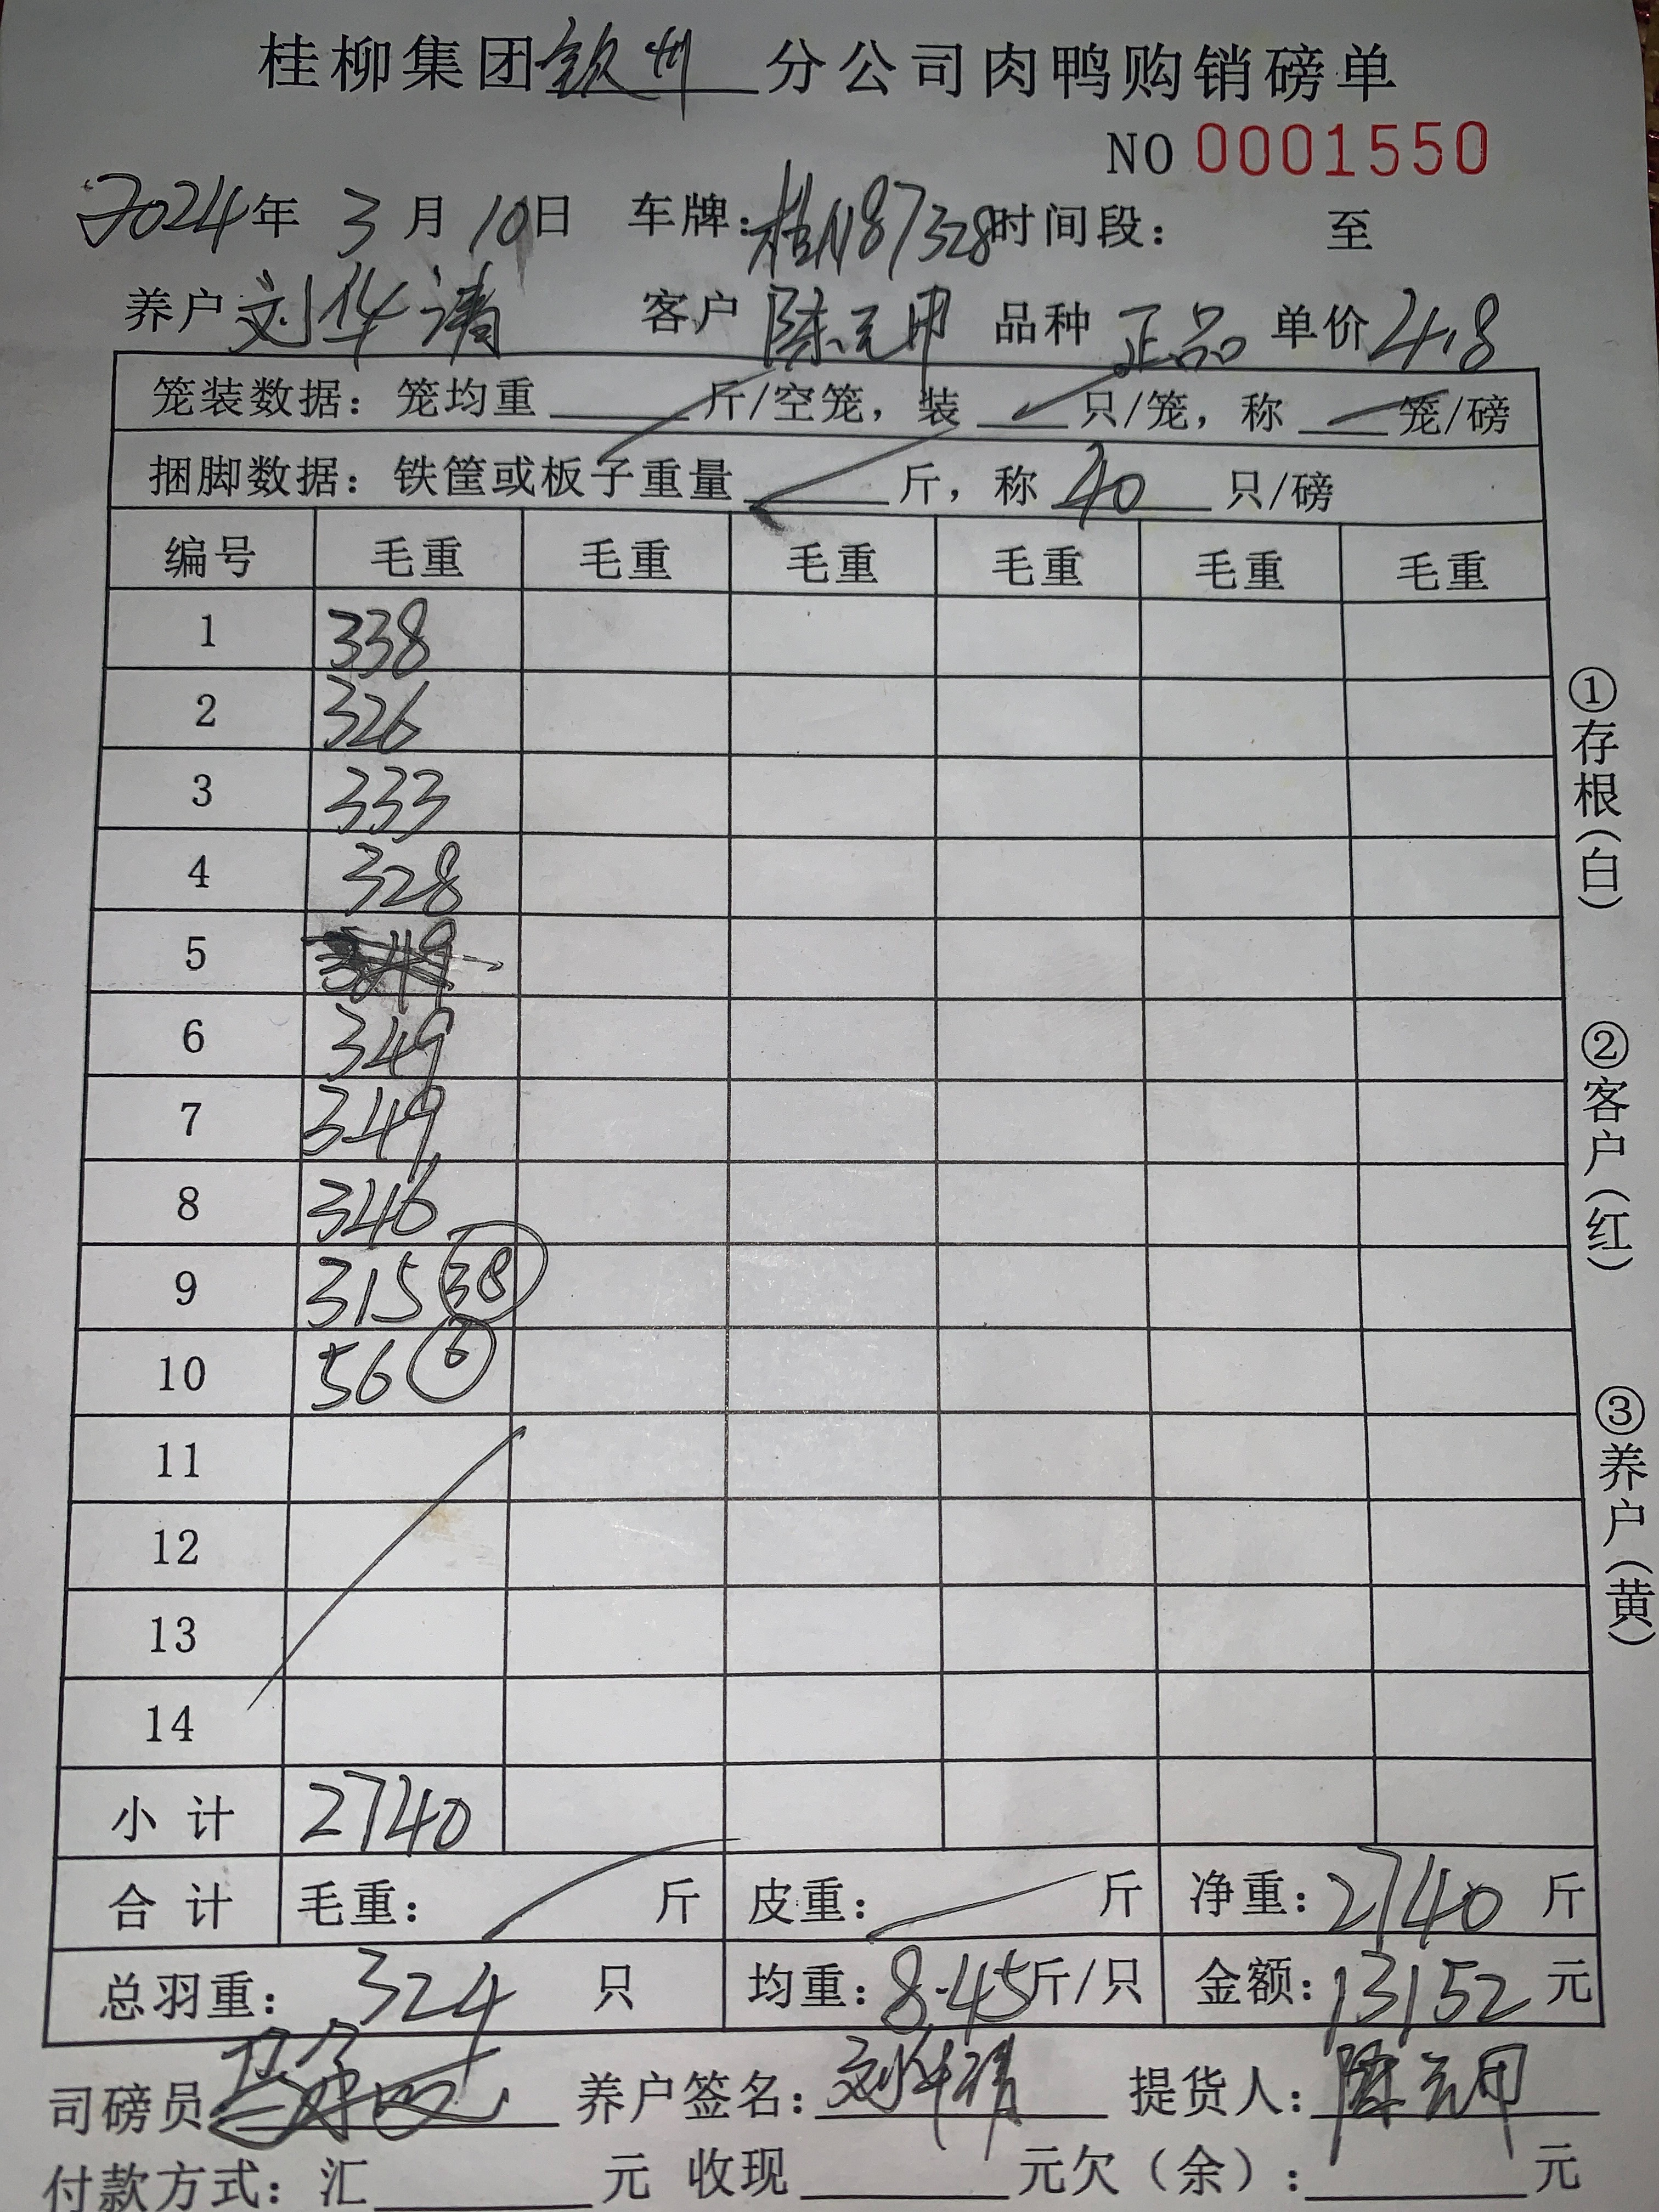 桂柳集团钦州分公司肉鸭购销磅单
NO 0001550
2024年 3月 10日 车牌：桂N87328 时间段： 至
养户 刘华清 客户 陈元甲 品种 正品 单价 4.8
笼装数据：笼均重____斤/空笼，装____只/笼，称____笼/磅
捆脚数据：铁筐或板子重量____斤，称 40 只/磅
编号 毛重 毛重 毛重 毛重 毛重 毛重
1 338
2 326
3 333
4 328
5 349
6 349
7 349
8 346
9 315 38
10 56 6
11
12
13
14
小计 2740
合计 毛重： 斤 皮重： 斤 净重：2740 斤
总羽重：324 只 均重：8.45斤/只 金额：13152 元
司磅员 养户签名：刘华清 提货人：陈元甲
付款方式：汇____元 收现____元欠（余）：____元
①存根（白）
②客户（红）
③养户（黄）